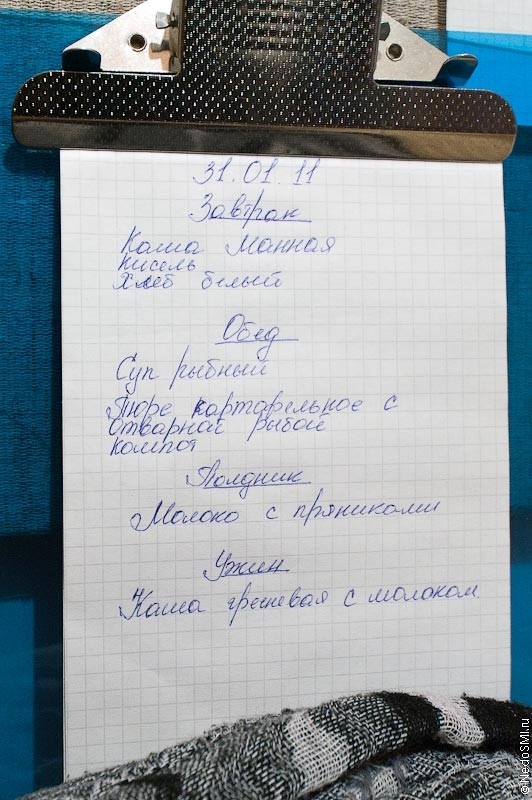 31.01.11
Завтрак
Каша манная
кисель
Хлеб белый
Обед
Суп рыбный
Пюре картофельное с
отварной рыбой
компот
Полдник
Молоко с пряниками
Ужин
Каша гречневая с молоком